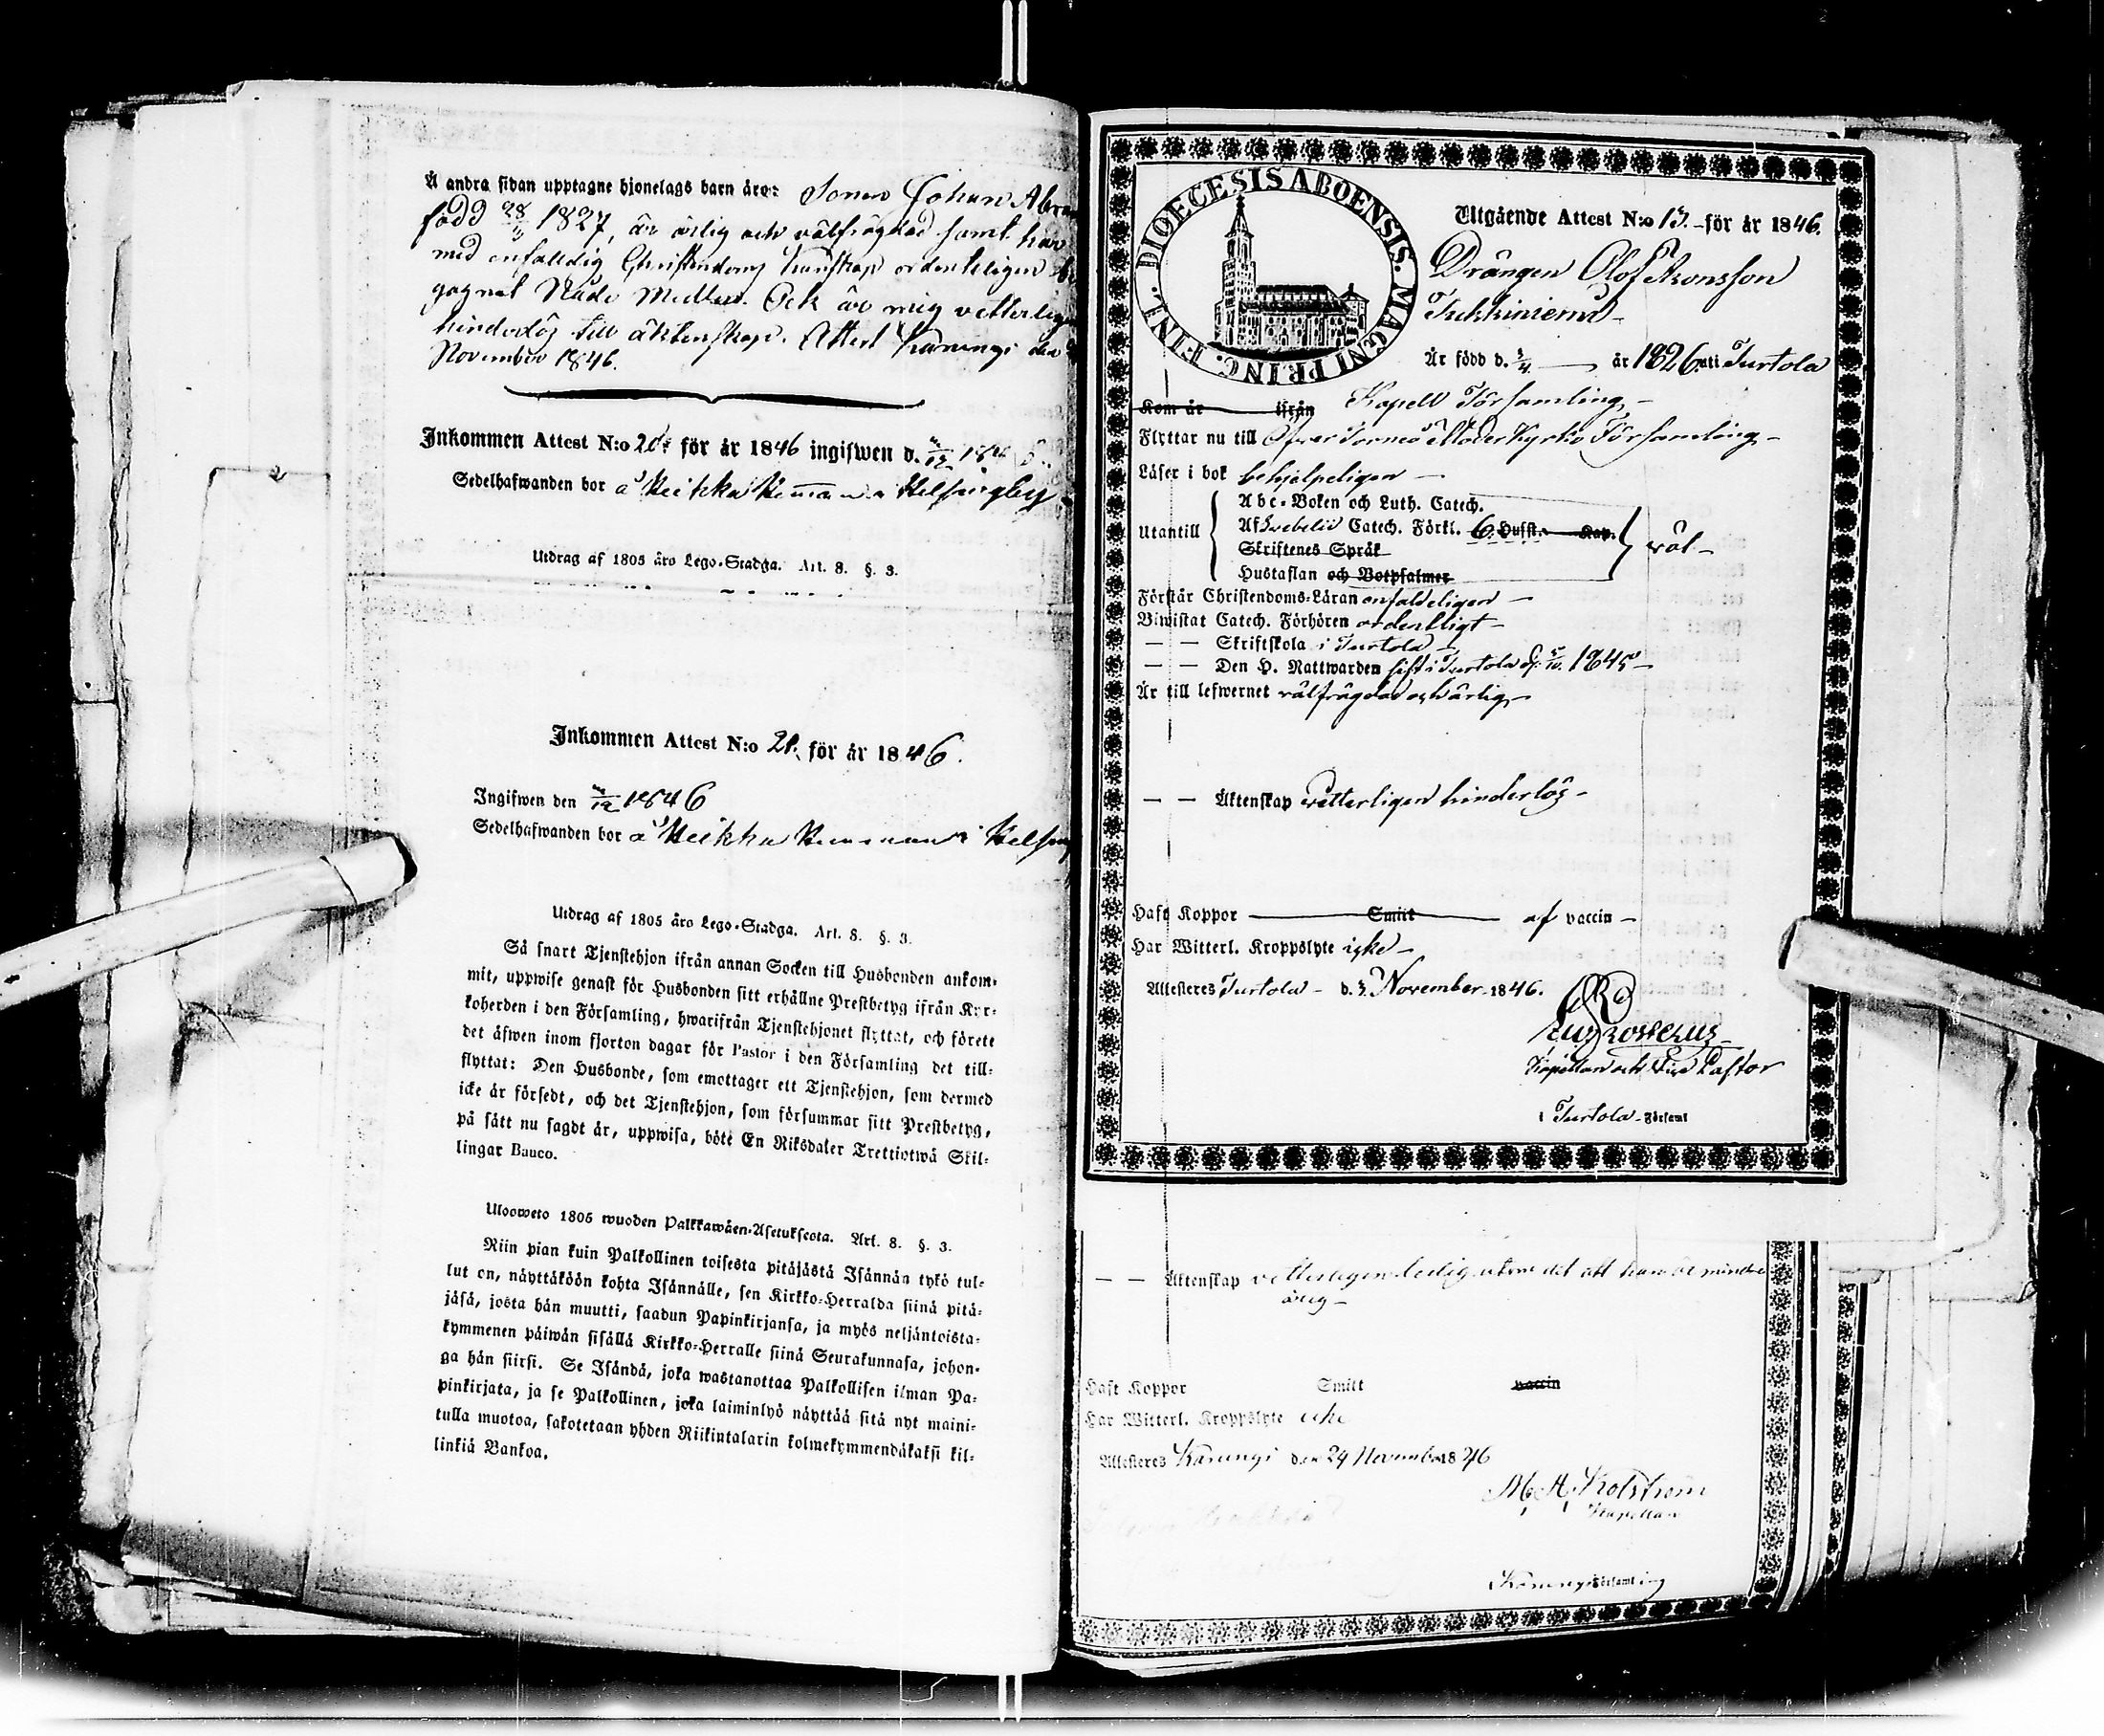 Å andra sidan upptagne hjonelags barn äro: Sonen Johan
född 28/ 1827, är ärlig och välfrägdad samt har
med enfaldig Christendoms kunskap ordenteligen
gagnat Nåde Medlen. Och är mig vetterlig
hinderlös till äktenskap. Attest Karungi den
November 1846.
Inkommen Attest N:o för år 1846 ingifwen d. /12 184
Sedelhafwanden bor å Heikka i Helsingby
Utdrag af 1805 års Lego-Stadga. Art. 8. §. 3.
Inkommen Attest N:o för år 1846.
Ingifwen den /12 1846
Sedelhafwanden bor å Heikka i
Utdrag af 1805 års Lego-Stadga. Art. 8. §. 3.
Så snart Tjenstehjon ifrån annan Socken till Husbonden ankom-
mit, uppwise genast för Husbonden sitt erhållne Prestbetyg ifrån Kyr-
koherden i den Församling, hwarifrån Tjenstehjonet flyttat, och förete
det äfwen inom fjorton dagar för Pastor i den Församling det till-
flyttat: Den Husbonde, som emottager ett Tjenstehjon, som dermed
icke är försedt, och det Tjenstehjon, som försummar sitt Prestbetyg,
på sätt nu sagdt är, uppwisa, böte En Riksdaler Trettiotwå Skil-
lingar Banco.
Uloosweto 1805 wuoden Palkkawäen-Asetuksesta. Art. 8. §. 3.
Niin pian kuin Palkollinen toisesta pitäjästä Isännän tykö tul-
lut on, näyttäköön kohta Isännälle, sen Kirkko-Herralda siinä pitä-
jäsä, josta hän muutti, saadun Papinkirjansa, ja myös neljäntoista-
kymmenen päiwän sisällä Kirkko-Herralle siinä Seurakunnasa, johon-
ga hän siirsi. Se Isändä, joka wastanottaa Palkollisen ilman Pa-
pinkirjata, ja se Palkollinen, joka laiminlyö näyttää sitä nyt maini-
tulla muotoa, sakotetaan yhden Riikintalarin kolmekymmendäkaksi kil-
linkiä Bankoa.
DIOECESIS ABOENSIS. MAGNI PRINC. FINL.
Utgående Attest N:o 13. för år 1846.
Drängen Olof Aronsson
Tukkiniemi
Är född d. 3/4 år 1826 uti Turtola
Kom år ifrån Kapell Församling
Flyttar nu till Öfver Torneå Moder Kyrko Församling
Läser i bok behjelpeligen
Utantill
Abc-Boken och Luth. Catech.
Af Svebelii Catech. Förkl. 6 Hufst. Kap.
Skriftenes Språk
Hustaflan och Botpsalmer
väl
Förstår Christendoms-Läran enfaldeligen
Biwistat Catech. Förhören ordentligt
— — Skriftskola i Turtola
— — Den H. Nattwarden sist i Turtola d. 1845
Är till lefwernet välfrägdad och ärlig
— — Äktenskap vetterligen hinderlös
Haft Koppor Smitt af vaccin
Har Witterl. Kroppslyte icke
Attesteres Turtola d. November 1846.
Kapellan och Vice Pastor
i Turtola Församl
— — Äktenskap vetterligen ledig utom det att han är minder
årig
Haft Koppor Smitt vaccin
Har Witterl. Kroppslyte icke
Attesteres Karungi den 24 November 1846
Kapellan
Karungi Församling